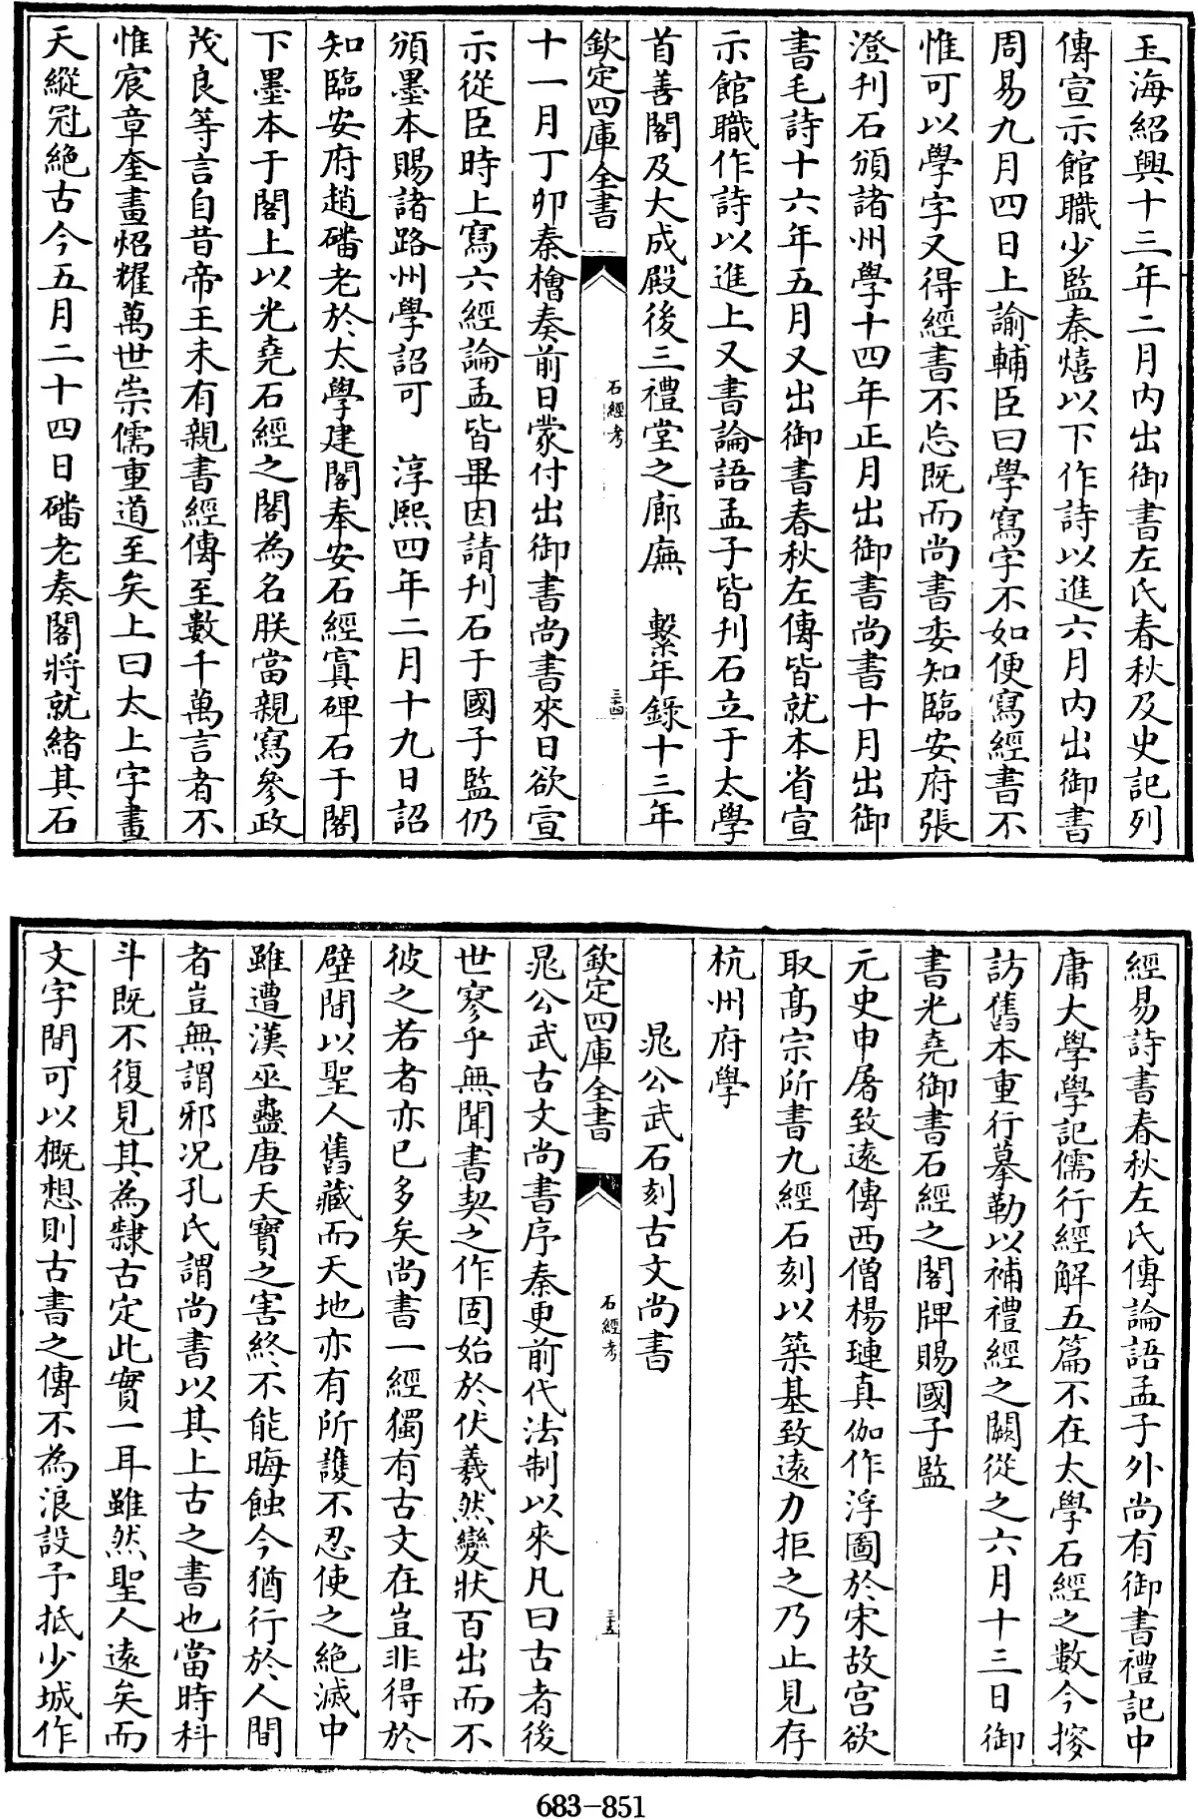 玉海紹興十三年二月内出御書左氏春秋及史記列
傳宣示館職少監秦熺以下作詩以進六月内出御書
周易九月四日上諭輔臣曰學寫字不如便寫經書不
惟可以學字又得經書不忘既而尚書委知臨安府張
澄刊石頒諸州學十四年正月出御書尚書十月出御
書毛詩十六年五月又出御書春秋左傳皆就本省宣
示館職作詩以進上又書論語孟子皆刊石立于太學
首善閣及大成殿後三禮堂之廊廡　繫年錄十三年
欽定四庫全書
石經考
三十四
十一月丁卯秦檜奏前日蒙付出御書尚書來日欲宣
示從臣時上寫六經論孟皆畢因請刊石于國子監仍
頒墨本賜諸路州學詔可　淳熙四年二月十九日詔
知臨安府趙磻老於太學建閣奉安石經寘碑石于閣
下墨本于閣上以光堯石經之閣為名朕當親寫參政
茂良等言自昔帝王未有親書經傳至數千萬言者不
惟宸章奎畫炤耀萬世崇儒重道至矣上曰太上字畫
天縱冠絶古今五月二十四日磻老奏閣將就緒其石
經易詩書春秋左氏傳論語孟子外尚有御書禮記中
庸大學學記儒行經解五篇不在太學石經之數今搜
訪舊本重行摹勒以補禮經之闕從之六月十三日御
書光堯御書石經之閣牌賜國子監
元史申屠致遠傳西僧楊璉真伽作浮圖於宋故宮欲
取高宗所書九經石刻以築基致遠力拒之乃止見存
杭州府學
晁公武石刻古文尚書
欽定四庫全書
石經考
三十五
晁公武古文尚書序秦更前代法制以來凡曰古者後
世寥乎無聞書契之作固始於伏羲然變狀百出而不
彼之若者亦已多矣尚書一經獨有古文在豈非得於
壁間以聖人舊藏而天地亦有所護不忍使之絶滅中
雖遭漢巫蠱唐天寶之害終不能晦蝕今猶行於人間
者豈無謂邪况孔氏謂尚書以其上古之書也當時科
斗既不復見其為隸古定此實一耳雖然聖人遠矣而
文字間可以概想則古書之傳不為浪設予抵少城作
683-851